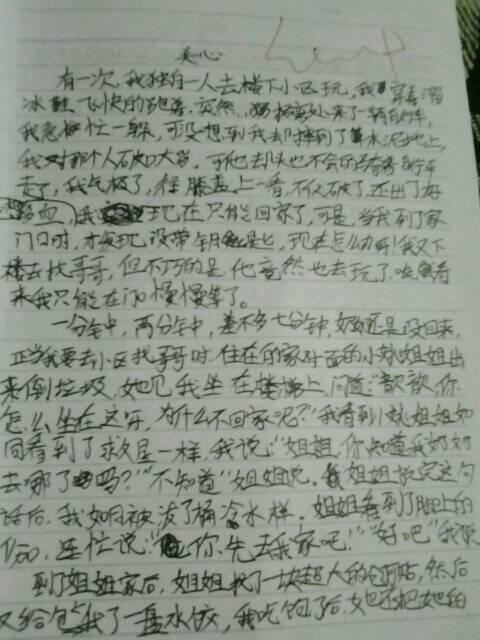 关心
有一次,我独自一人去楼下小区玩,我穿着溜
冰鞋飞快的跑着。突然,拐弯处来了一辆自行车,
我急忙一躲,可没想到我却摔到了水泥地上,
我对那个人破口大骂。可他去头也不会的骑着自行车
走了,我气极了,往膝盖上一看,不仅破了,还出了好
多血,我现在只能回家了,可是,当我到了家
门口时,才发现没带钥匙,现在怎么办呀!我又下
楼去找哥哥,但不巧的是他竟然也去玩了。唉,看
来我只能在门口慢慢等了。
一分钟,两分钟,差不多七分钟,奶奶还是没回来,
正当我要去小区找哥哥时,住在我家对面的小姐姐出
来倒垃圾,她见我坐在楼梯上,问道:"歆歆,你
怎么坐在这呀,为什么不回家呢?"我看到小姐姐如
同看到了救星一样,我说:"姐姐,你知道我奶奶
去哪了吗?""不知道"姐姐说。我姐姐说完这句
话后,我如同被泼了桶冷水样。姐姐看到了腿上的
伤口,连忙说:"你先去我家吧!""好吧"我说
到了姐姐家后,姐姐找了一块超人的创可贴,然后
又给我了一盘水饺,我吃饱了后,她还把她的